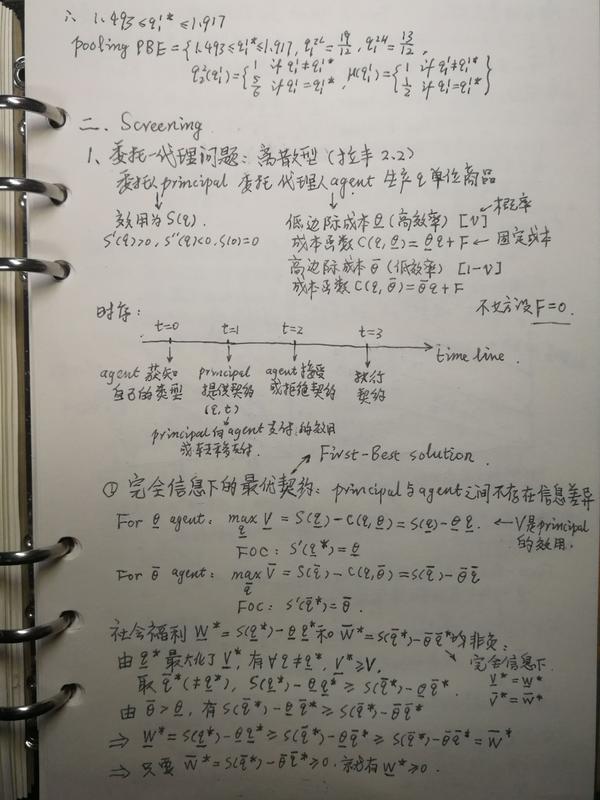 ∴ 1.493 ≤ q₁¹* ≤ 1.917
pooling PBE = {1.493 ≤ q₁¹* ≤ 1.917, q₁²ᴸ = 19/12, q₁²ᴴ = 13/12,
q₂²(q₁¹) = {1 if q₁¹ ≠ q₁¹*, 5/6 if q₁¹ = q₁¹*, μ(q₁¹) = {1 if q₁¹ ≠ q₁¹*, 1/2 if q₁¹ = q₁¹*}
二、Screening
1、委托—代理问题：离散型（拉丰2.2）
委托人principal 委托 代理人agent 生产q单位商品
效用为S(q).
S'(q)>0, S''(q)<0, S(0)=0
低边际成本θ̲（高效率）[V] ← 概率
成本函数 C(q, θ̲) = θ̲q + F ← 固定成本
高边际成本θ̄（低效率）[1-V]
成本函数 C(q, θ̄) = θ̄q + F
不妨设F=0.
时序：
t=0 t=1 t=2 t=3 time line.
agent获知自己的类型
principal提供契约(q, t)
agent接受或拒绝契约
执行契约
principal向agent支付的效用或转移支付.
First-Best solution.
① 完全信息下的最优契约：principal与agent之间不存在信息差异
For θ̲ agent: max V̲ = S(q̲) - C(q̲, θ̲) = S(q̲) - θ̲q̲. ← V是principal的效用.
q̲
FOC: S'(q̲*) = θ̲
For θ̄ agent: max V̄ = S(q̄) - C(q̄, θ̄) = S(q̄) - θ̄q̄
q̄
FOC: S'(q̄*) = θ̄.
社会福利 W̲* = S(q̲*) - θ̲q̲* 和 W̄* = S(q̄*) - θ̄q̄* 均非负：
由 q̲* 最大化了 V̲*, 有∀q ≠ q̲*, V̲* ≥ V.
完全信息下
V̲* = W̲*
V̄* = W̄*
取 q̄*(≠q̲*), S(q̲*) - θ̲q̲* ≥ S(q̄*) - θ̲q̄*.
由 θ̄ > θ̲, 有 S(q̄*) - θ̲q̄* ≥ S(q̄*) - θ̄q̄*
⇒ W̲* = S(q̲*) - θ̲q̲* ≥ S(q̄*) - θ̲q̄* ≥ S(q̄*) - θ̄q̄* = W̄*
⇒ 只要 W̄* = S(q̄*) - θ̄q̄* ≥ 0, 就有 W̲* ≥ 0.